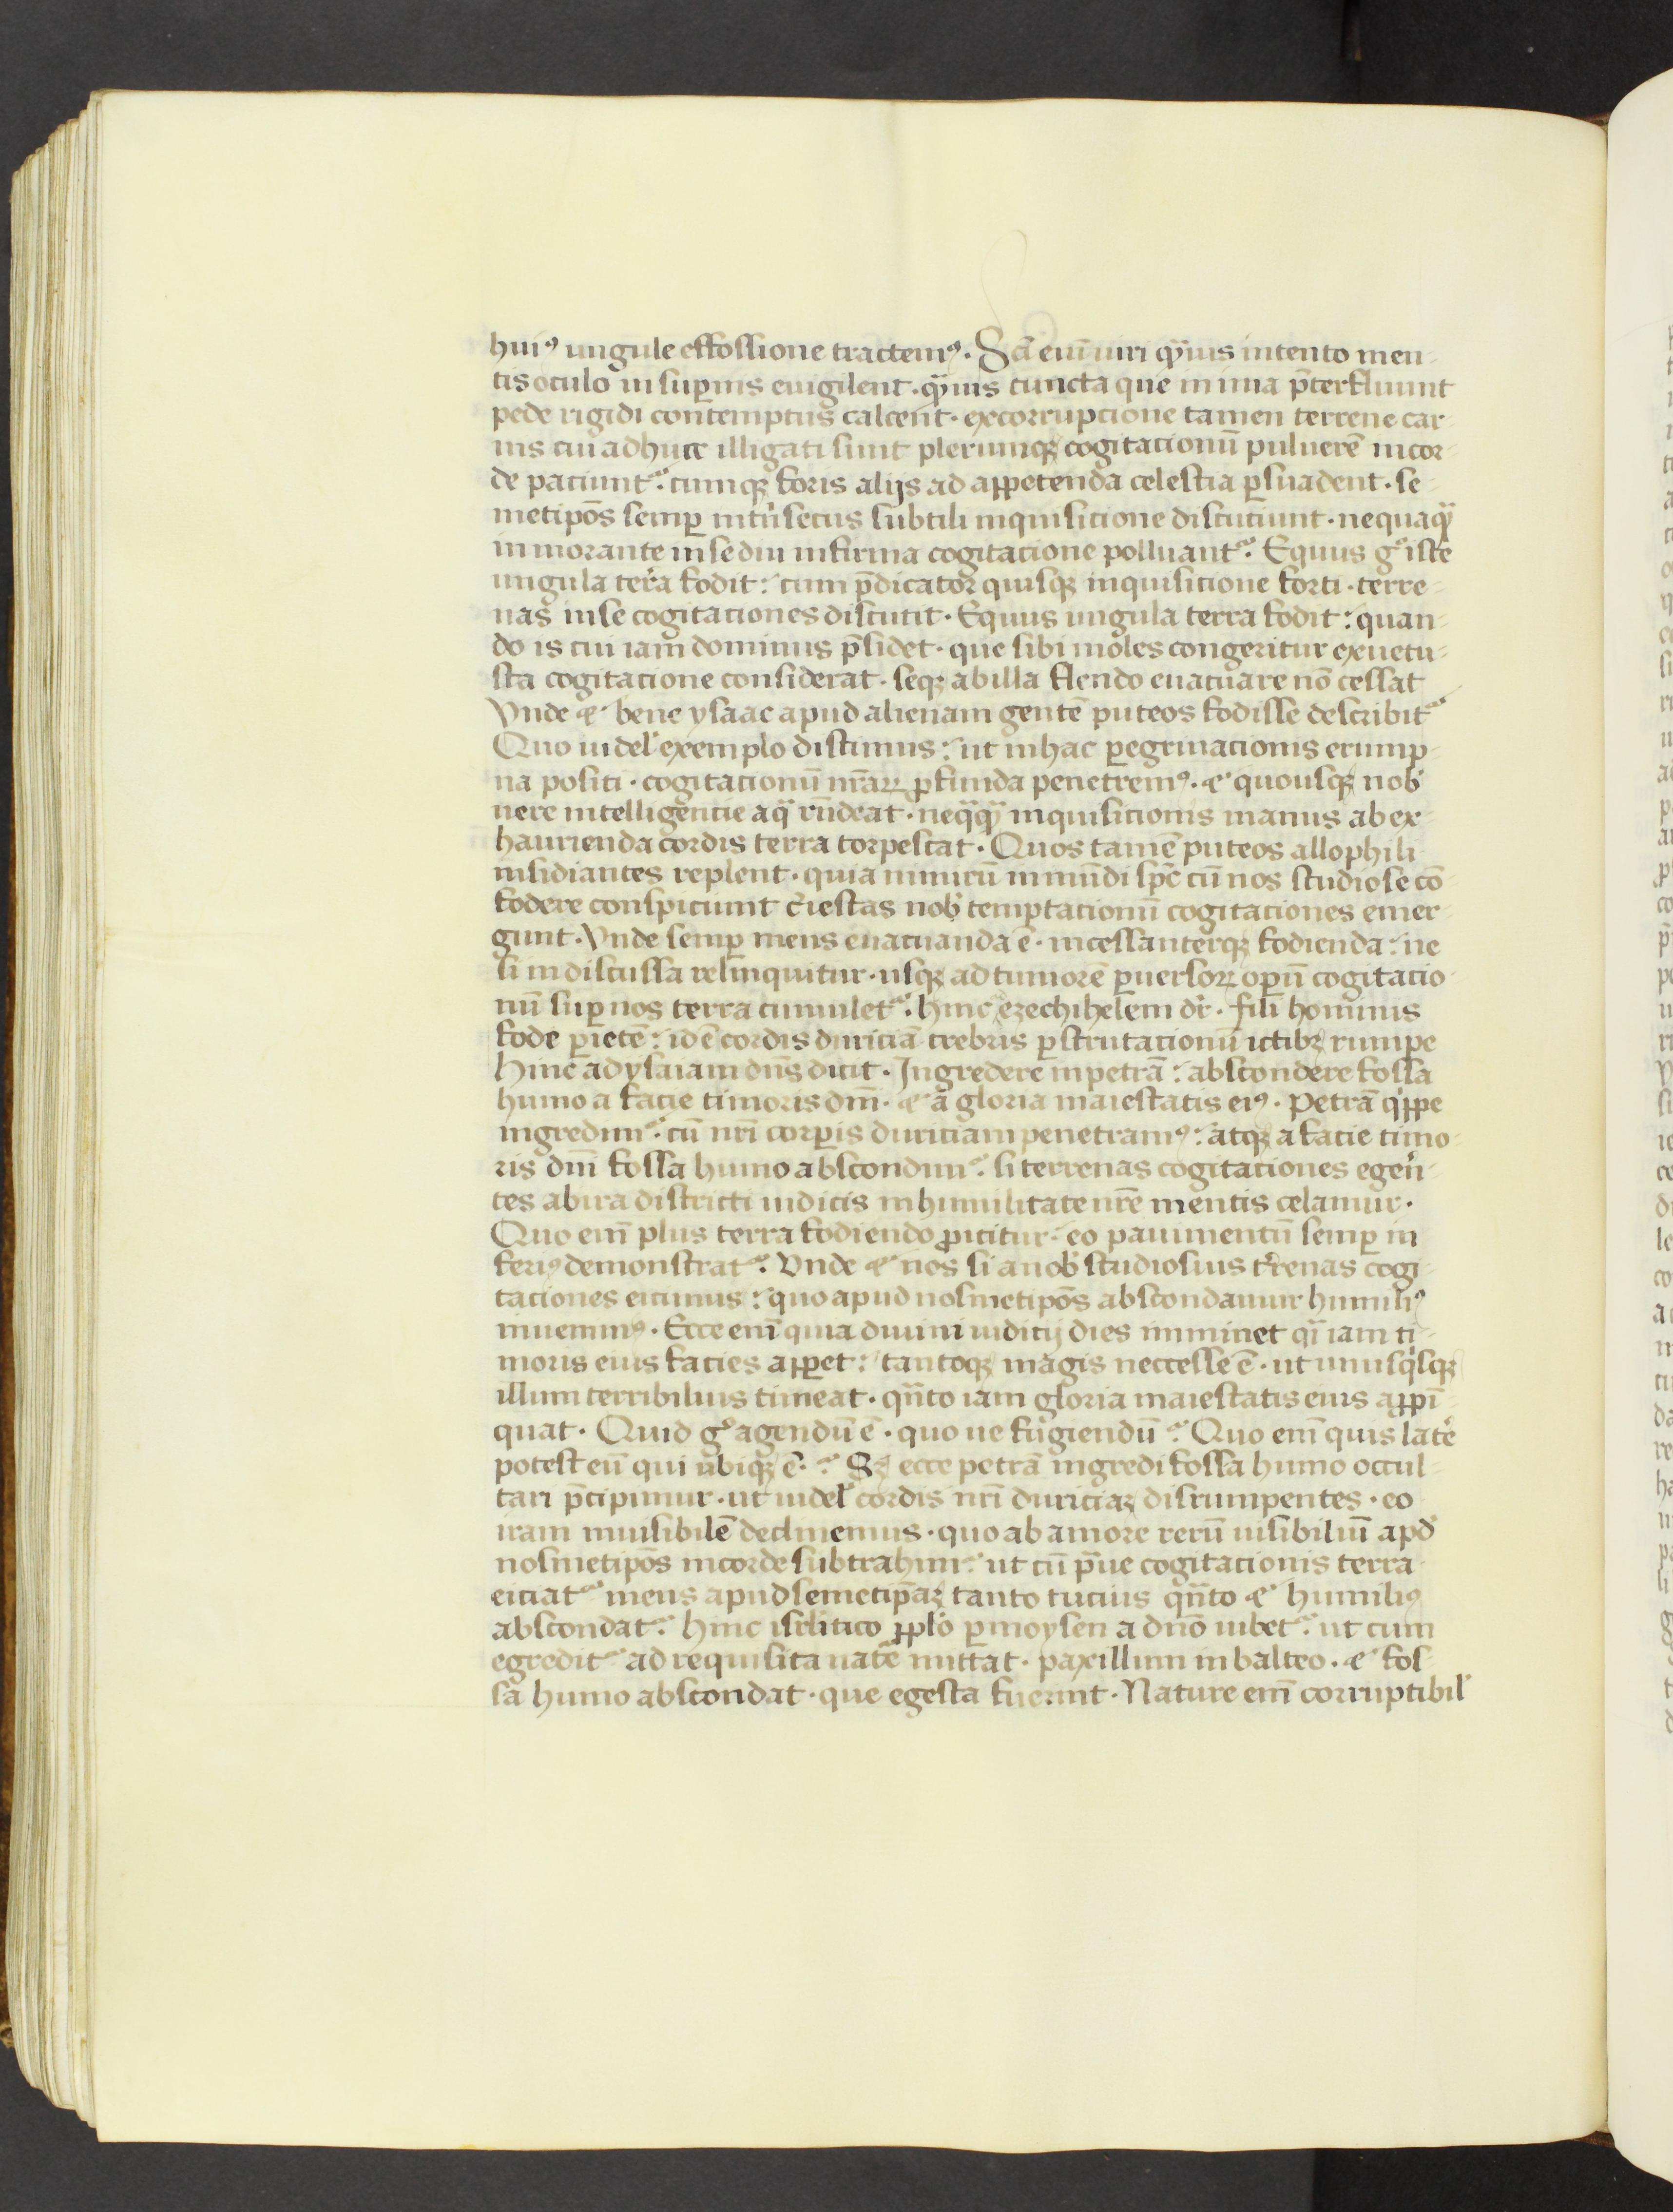 huiꝰ ungule effossione tractemꝰ. Scī enī uiri qͣuis intento men-
tis oculo in suꝑnis euigilent. qͣuis cuncta que in ima p̄terfluunt
pede rigidi contemptus calcent. ex corrupcione tamen terrene car-
nis cui adhuc illigati sunt plerumqꝫ cogitacionū puluerē in cor-
de paciunt᷑. cumqꝫ foris alijs ad appetenda celestia ꝑsuadent. se-
metipōs semꝑ intͥnsecus subtili inquisicione discuciunt. nequaqͣ
inmorante in se diu infirma cogitacione polluant᷑. Equus gͦ iste
ungula terͣa fodit: cum p̄dicator quisqꝫ inquisicione forti. terre-
nas in se cogitaciones discutit. Equus ungula terra fodit: quan-
do is cui iam dominus p̄sidet. que sibi moles congeritur ex uetu-
sta cogitacione considerat. seqꝫ ab illa flendo euacuare nō cessat
Vnde ⁊ bene ysaac apud alienam gentē puteos fodisse describit᷑
Quo uidelꝫ exemplo discimus: ut in hac ꝑegrinacionis erump-
na positi. cogitacionū nr̄aꝝ ꝓfunda penetremꝰ. ⁊ quousqꝫ nob̓
uere intelligencie aqͣ rn̄deat. neqͣqͣ inquisicionis manus ab ex-
haurienda cordis terra torpescat. Quos tamē puteos allophili
insidiantes replent. quia nimirū inmundi sp̄c cū nos studiose cō-
fodere conspiciunt c̄iestas nob̓ temptacionū cogitaciones emer-
gunt. Vnde semꝑ mens euacuanda ē. incessanterqꝫ fodienda: ne
si indiscussa relinquitur. usqꝫ ad tumorē ꝑuersoꝝ oꝑū cogitacio-
nū suꝑ nos terra cumulet᷑. hinc ezechihelem dr̄. fili hominis
fode ꝑietē: id ē cordis duriciā crebris ꝑscrutacionū ictibꝫ rumpe
hinc ad ysaiam dn̄s dicit. Ingredere in petrā: abscondere fossa
humo a facie timoris dn̄i. ⁊ a gloria maiestatis eiꝰ. petrā qͥppe
ingredim᷑. cū nr̄i corꝑis duriciam penetramꝰ: atqꝫ a facie timo-
ris dn̄i fossa humo abscondim᷑. si terrenas cogitaciones egeren-
tes ab ira districti iudicis in humilitate nr̄e mentis celamur.
Quo enī plus terra fodiendo ꝓicitur. eo pauimentū semꝑ in
feriꝰ demonstrat᷑. Vnde ⁊ nos si a nob̓ studiosius t̓renas cogi-
taciones eicimus: quo apud nosmetipōs abscondamur humiliꝰ
inuenimꝰ. Ecce enī quia diuini iudicij dies imminet qͣi iam ti-
moris eius facies apꝑet: tantoqꝫ magis neccesse ē. ut unusqͥsqꝫ
illum terribilius timeat. qn̄to iam gloria maiestatis eius apꝓpī-
quat. Quid gͦ agendū ē. quo ue fugiendū᷑ Quo enī quis late͛
potest eū qui ubiqꝫ ē. Sꝫ ecce petrā ingredi fossa humo occul-
tari p̄cipimur. ut uidelꝫ cordis nr̄i duriciaꝫ disrumpentes. eo
iram inuisibilē declinemus. quo ab amore rerū uisibiliū apd̓
nosmetipōs in corde subtrahim᷑. ut cū pͣue cogitacionis terra
eiciat᷑ mens apud semetip̄aꝫ tanto tucius qn̄to ⁊ humiliꝰ
abscondat᷑. hinc isrl̓itico pp̄lo ꝑ moysen a dn̄o iubet᷑. ut cum
egredit᷑ ad requisita nate mittat. paxillum in balteo. ⁊ fos-
sa humo abscondat. que egesta fuerint. Nature enī corruptibil̓